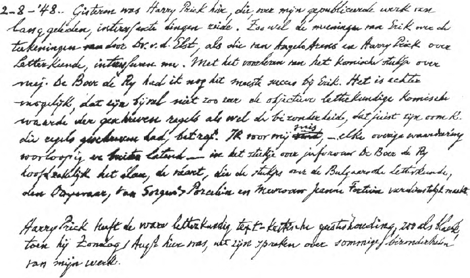 2-8-'48. Gisteren was Harry Prick hier, die over mijn gepubliceerde werk van
lang geleden, interessante dingen zeide. Zoowel de meeningen van Erik over de
teekeningen van door Dr. v. d. Elst, als die van en Harry Prick over
letterkunde, interesseeren me. Met het voorlezen van het komische stukje over
mej. De Boer de Ry had ik nog het meeste succes bij Erik. Het is echter
mogelijk, dat zijn bijval niet zoo zeer de objectieve letterkundige komische
waarde der geschreven regels als wel de bizonderheid, dat juist zijn oom K.
die regels geschreven had, betrof. Ik voor mij – elke overige waardeering
voorloopig er buiten latend – in het stukje over juffrouw De Boer de Ry
hoofdzakelijk het élan, de vaart, die de stukjes over de Bulgaarsche letterkunde,
den Ooyevaar, Van Porcelein en Mevrouw Fortuin verdienstelijk maakt

Harry Prick heeft de ware letterkundig, text-kritische geesteshouding, zoo als bleek
toen hij Zondag 1 Aug. hier was, uit zijn spreken over sommige bizonderheden
van mijn werk.